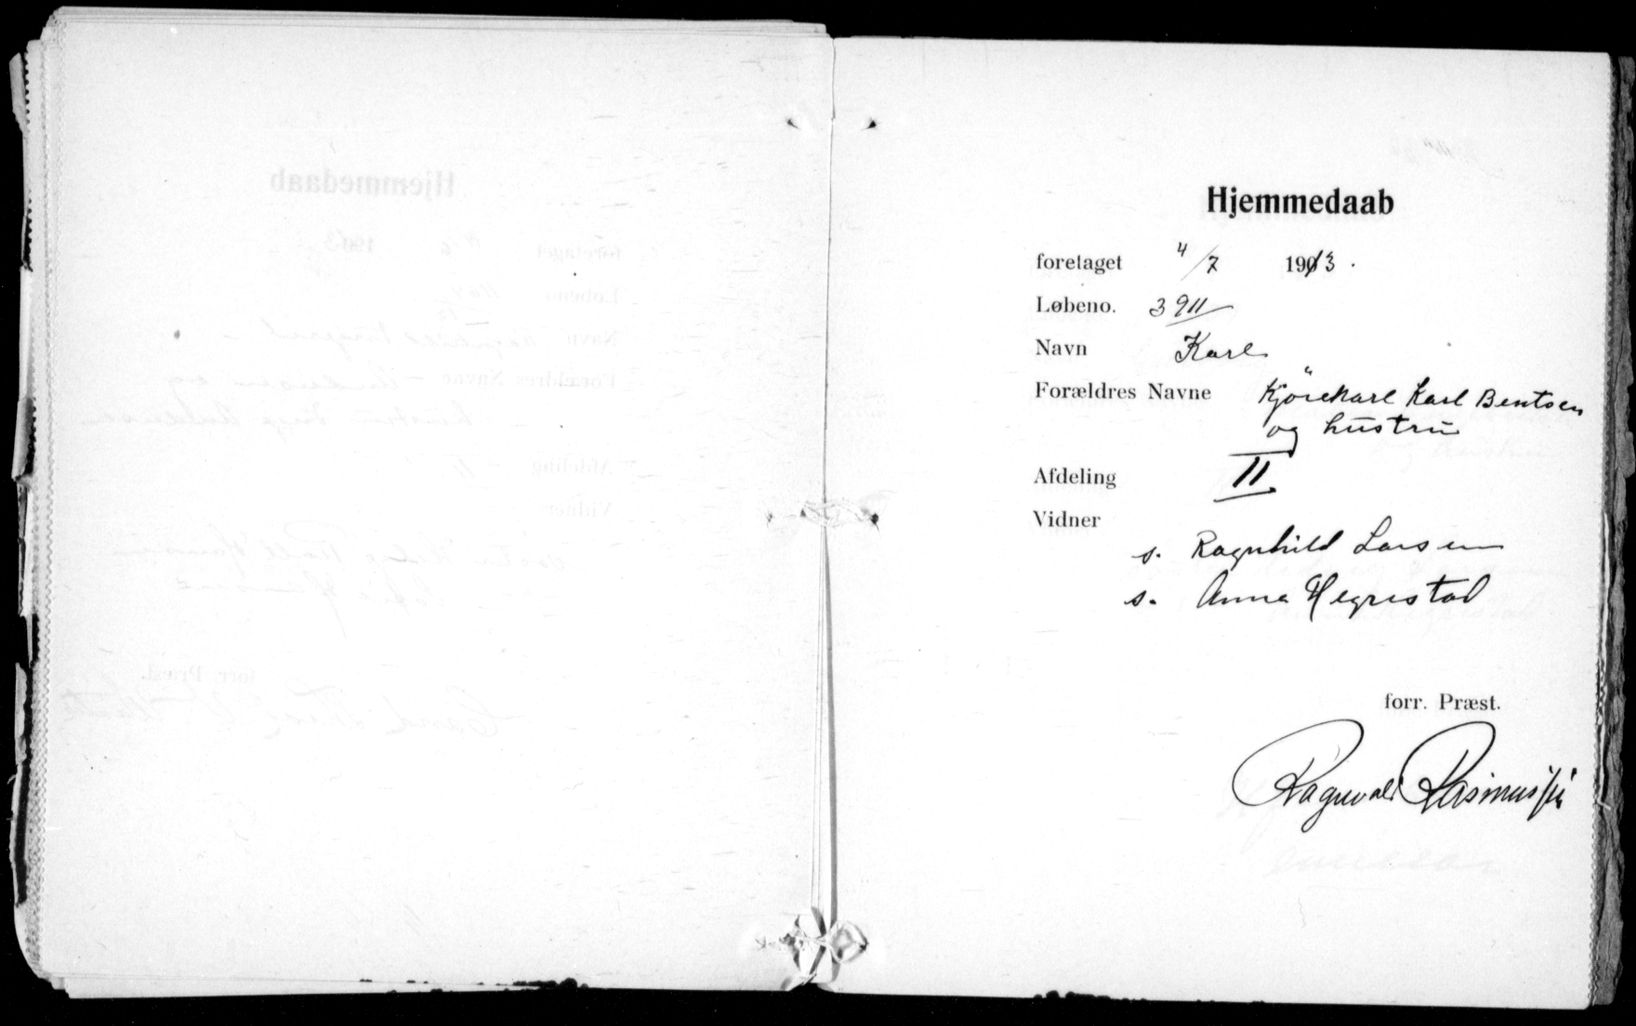 Hjemmedaab
foretaget 4/7 1913.
Løbeno. 3911
Navn Karl
Forældres Navne Kjørekarl Karl Bentsen
og hustru
Afdeling II
Vidner
s. Ragnhild Larsen
s. Anna Hegrestad
forr. Præst.
Ragnvald Rasmussen